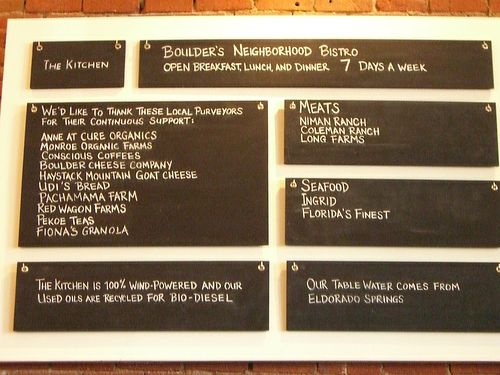 THE KITCHEN
BOULDER'S NEIGHBORHOOD BISTRO
OPEN BREAKFAST, LUNCH, AND DINNER 7 DAYS A WEEK
WE'D LIKE TO THANK THESE LOCAL PURVEYORS
FOR THEIR CONTINUOUS SUPPORT:
ANNE AT CURE ORGANICS
MONROE ORGANIC FARMS
CONSCIOUS COFFEES
BOULDER CHEESE COMPANY
HAYSTACK MOUNTAIN GOAT CHEESE
UDI'S BREAD
PACHAMAMA FARM
RED WAGON FARMS
PEKOE TEAS
FIONA'S GRANOLA
MEATS
NIMAN RANCH
COLEMAN RANCH
LONG FARMS
SEAFOOD
INGRID
FLORIDA'S FINEST
THE KITCHEN IS 100% WIND-POWERED AND OUR
USED OILS ARE RECYCLED FOR BIO-DIESEL
OUR TABLE WATER COMES FROM
ELDORADO SPRINGS